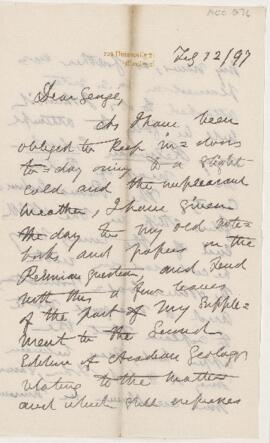 Feb 12/97
Dear George,
As I have been
obliged to keep in=doors
to=day owing to a slight
cold and the unpleasant
weather, I have given
the day to my old note=
books and papers on the
Permian question, and send
with this a few leaves
of the part of my Supple=
ment to the Second
Edition of Acadian Geology
relating to the matter
and which still